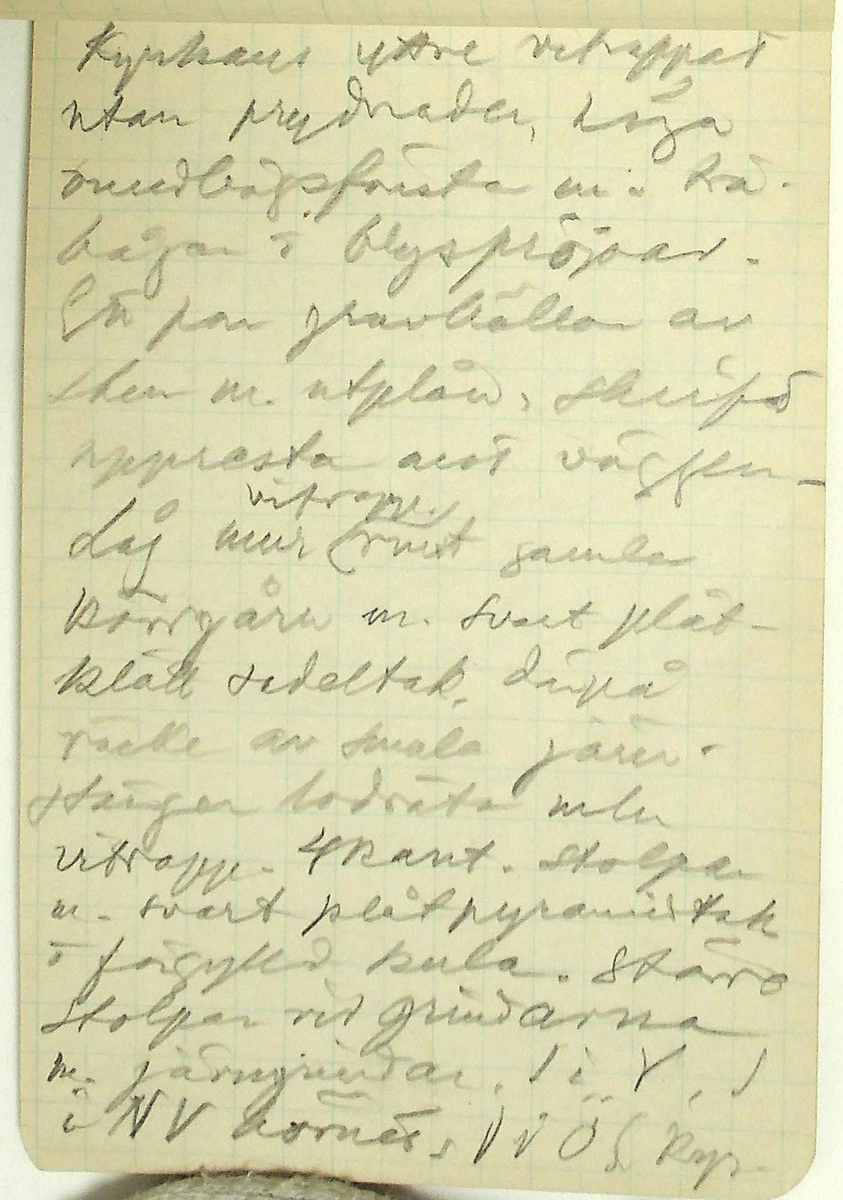 Kyrkans yttre vitrappat
utan prydnader, höga
rundbågsfönster m. trä-
bågar o blyspröjsar.
Ett par gravhällar av
sten m. utplån. skrift
uppresta mot väggen -
vitrapp.
Låg mur runt gamla
körrgårn m. svart plåt-
klätt sadeltak, därpå
räcke av smala järn-
stänger lodräta mln
vitrapp. 4kant. stolpar
m. svart plåtpyramidtak
o förgylld kula. Större
stolpar vid grindarna
m. järngrindar. 1 i V, 1
i NV hörnet, 1 i Ö kyr-